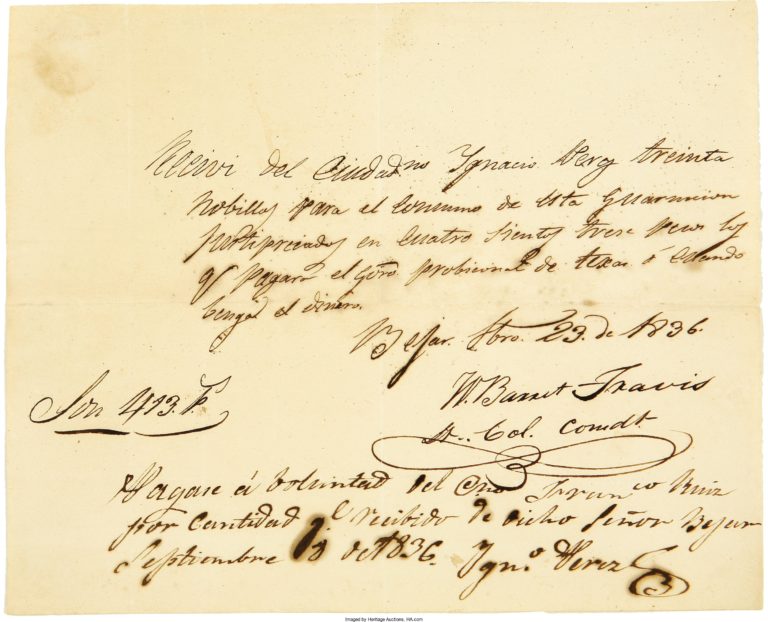 Recivi del Ciudadno Ygnacio Perez treinta
nobillos para el consumo de esta Guarnicion
en cuatro sientos trese pesos los
q pagara el Gno. probicional de texas ó cuando
benga el dinero.
Bejar. Fbro. 23. de 1836.
W. Barret Travis
Lt. Col. Comdt.
Son 413. Ps.
Pagase á boluntad del Cno Francco Ruiz
por Cantidad qe. recibido de dicho Señor Bejar
Septiembre 8 de 1836. Ygno. Perez
Imaged by Heritage Auctions, HA.com